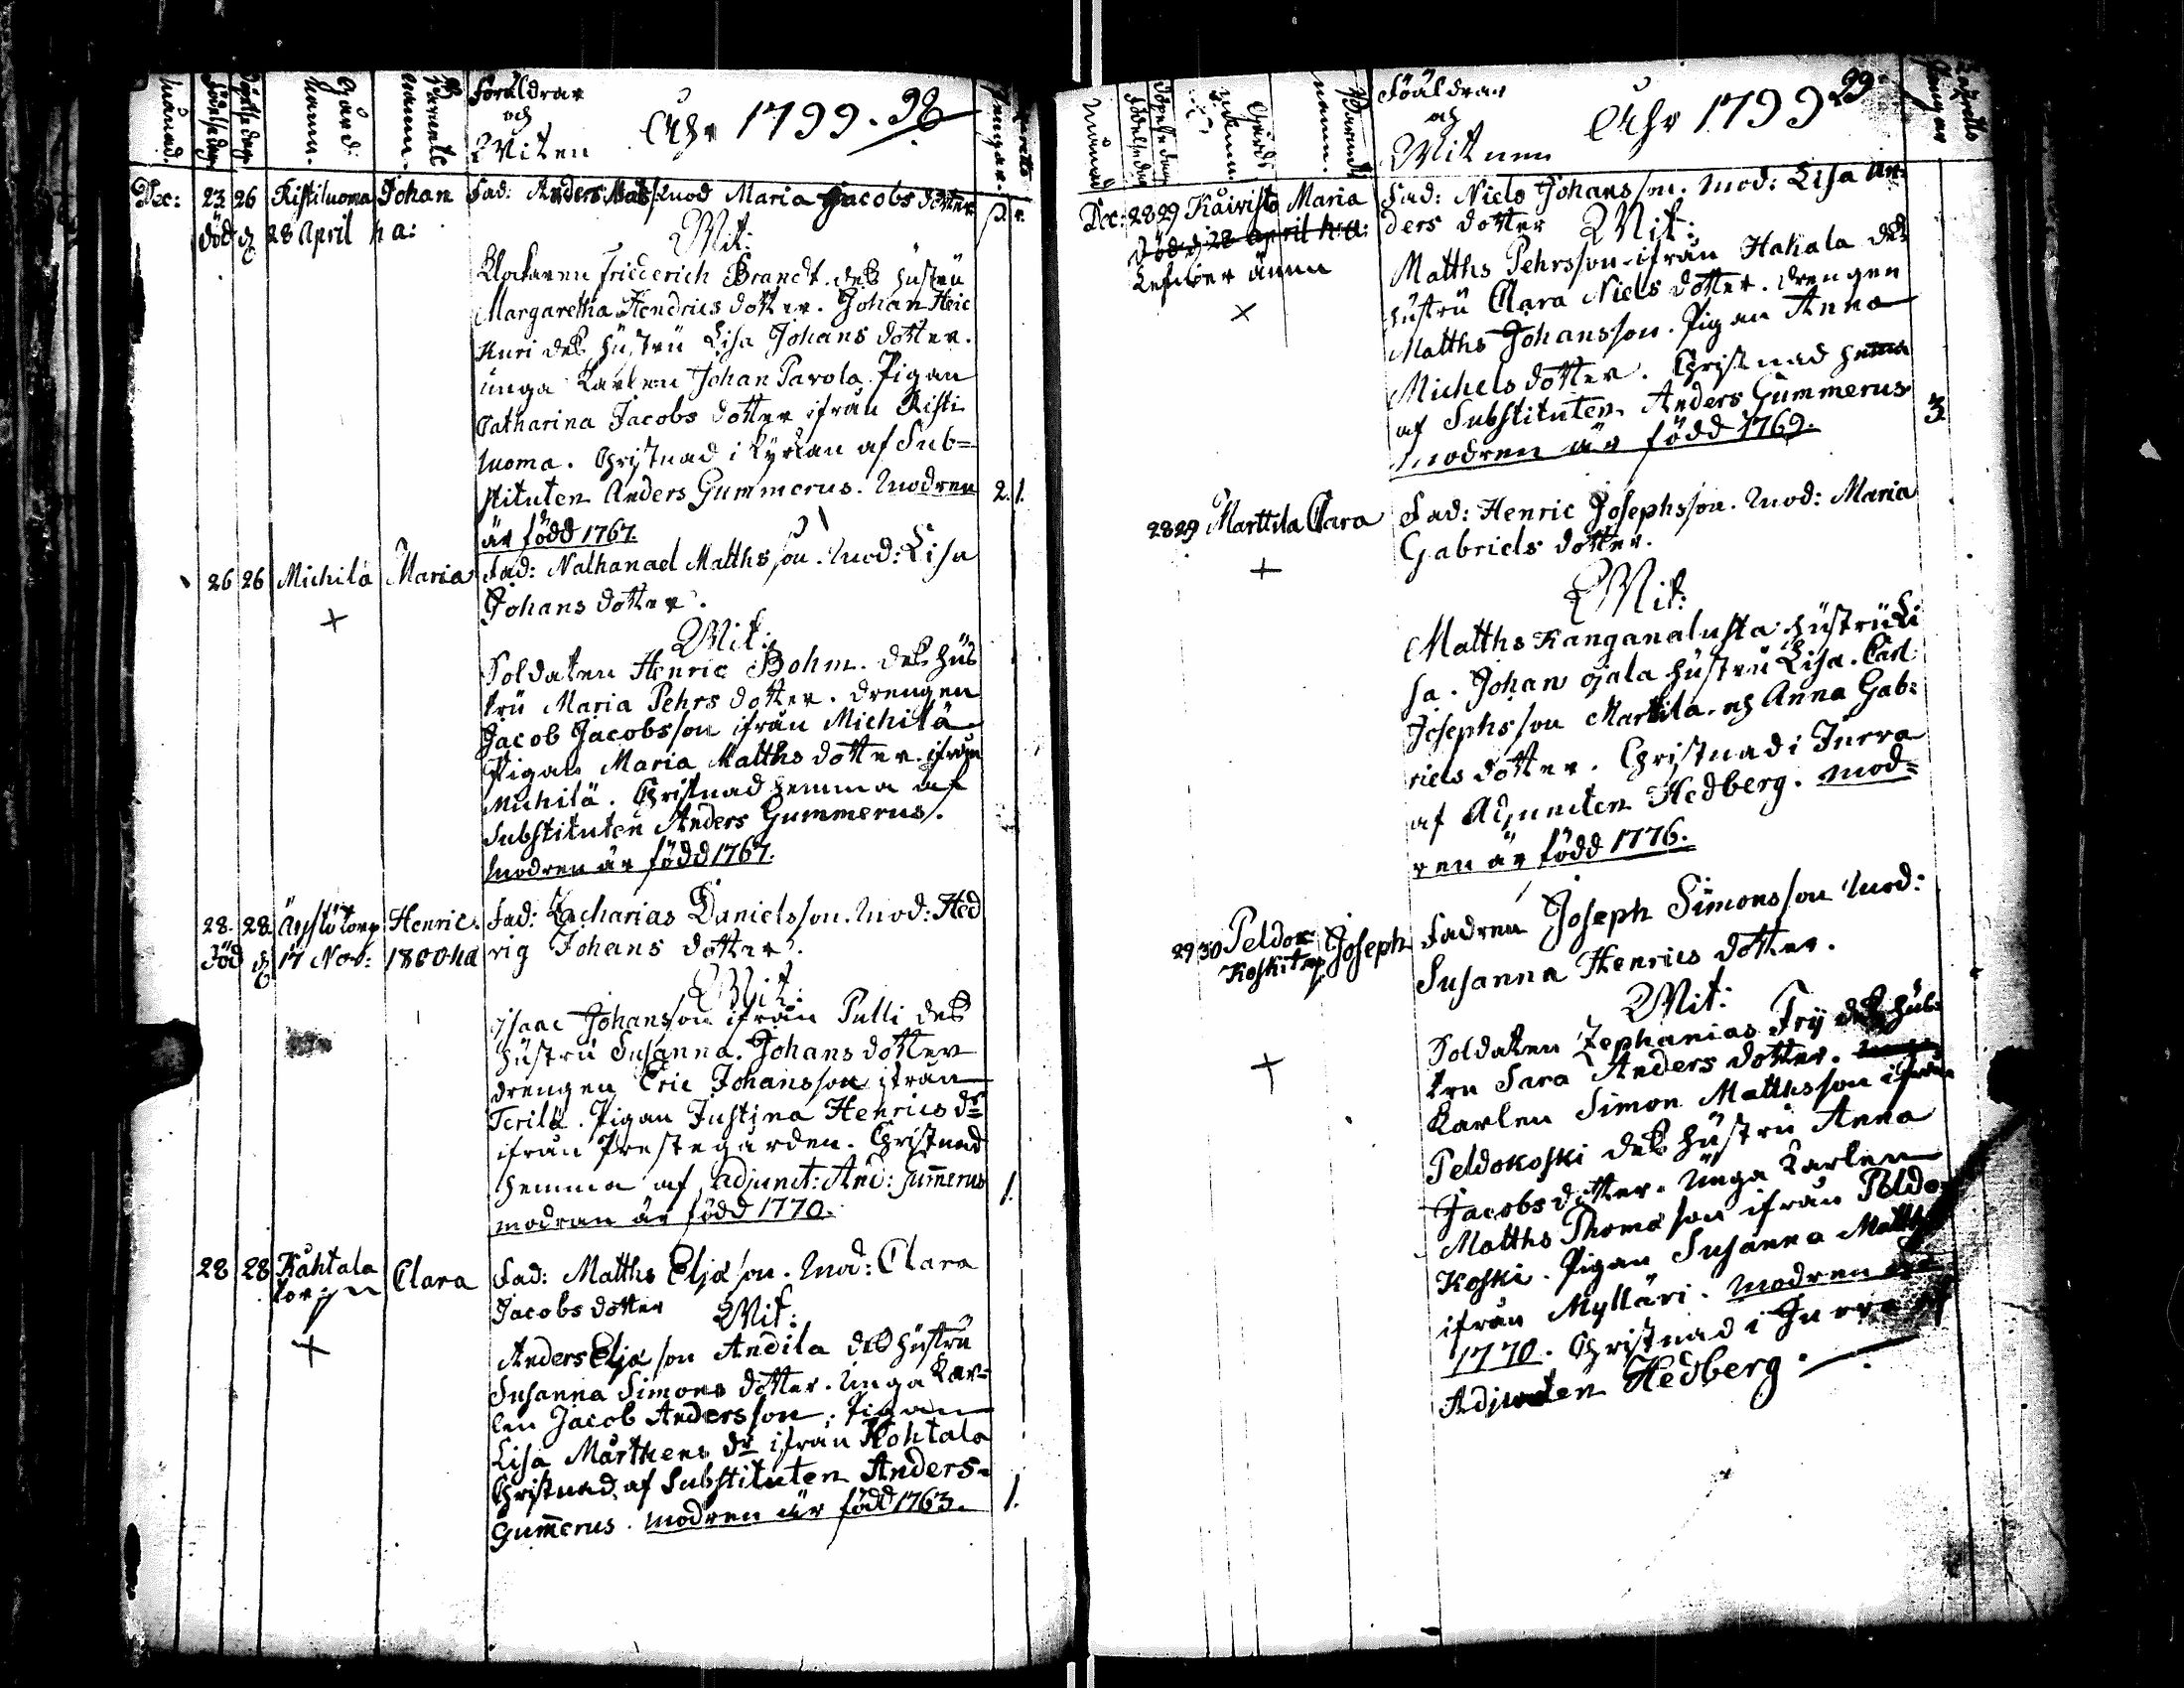 månad.
Födelsedag
Döpelse dag
Gård namn.
Barnets namn.
Föräldrar
och
Witen
Åhr 1799. 98
Pengar.
Dec: 23 26 Ristiluoma Johan Fad: Anders Mats: Mod Maria Jacobs dotter
död d 28 April h a:
Wit:
Klockaren Friederich Brandt. des hustru
Margaretha Hendrics dotter. Johan Heic
Kuri des hustru Lisa Johans dotter.
unga Karlen Johan Parola. Pigan
Catharina Jacobs dotter ifrån Risti
luoma. Christnad i kyrkan af Sub=
stituten Anders Gummerus. Modren 2. 1.
är född 1767.
26 26 Michilä Maria Fad: Nathanael Matthsson. Mod: Lisa
Johans dotter.
Wit:
Soldaten Henric Bohm. des hus
tru Maria Pehrs dotter. drengen
Jacob Jacobsson ifrån Michilä
Pigan Maria Matths dotter. ifrån
Michilä. Christnad hemma af
Substituten Anders Gummerus.
Modren är född 1767.
28. 28 torp Henric. Fad: Zacharias Danielsson. Mod: Hed
död d 17 Nov: 1800 h a vig Johans dotter.
Wit:
Isaac Johansson ifrån Pulli des
hustru Susanna. Johans dotter
drengen Eric Johansson ifrån
Terilä. Pigan Justina Henrics dr
ifrån Prestegården. Christnad
hemma af Adjunct: And: Gummerus 1.
modran är född 1770.
28 28 Kåhtala Clara Fad: Matths Eljasson. Mod: Clara
torpen Jacobs dotter Wit:
Anders Eljasson Andila des hustru
Susanna Simons dotter. Unga Kar=
len Jacob Andersson. Pigan
Lisa Mårthens dr ifrån Kohtala
Christnad af Substituten Anders 1.
Gummerus. modren är född 1763.
Månad
Födelse dag
Döpelse dag
Gårds namn
Barnets namn.
Föäldrar
och
Witnen
Åhr 1799 99.
Pengar
Dec: 28 29 Kåivisto Maria Fad: Niels Johansson. Mod: Lisa An=
död d 28 april h: a: ders dotter Wit:
Lefver ännu
Matths Pehrsson ifrån Hahala des
hustru Clara Niels dotter. drengen
Matths Johansson. Pigan Anna
Michels dotter. Christnad hemma
af Substituten Anders Gummerus 3
modren är född 1769.
28 29 Marttila Clara Fad: Henric Josephsson. Mod: Maria
Gabriels dotter.
Wit:
Matths Kanganalusta hustru Li
sa. Johan Ojala hustru Lisa. Carl
Josephsson Marttila. och Anna Gab=
riels dotter. Christnad i Jurva
af Adjuncten Hedberg. Mod=
ren är född 1776.
29 30 Peldo= Joseph Fadren Joseph Simonsson Mod:
Koski torp Susanna Henrics dotter.
Wit:
Soldaten Zephanias Fry des hus=
tru Sara Anders dotter.
Karlen Simon Matthsson ifrån
Peldokoski des hustru Anna
Jacobs dotter. Unga Karlen
Matths Thomasson ifrån Peldo=
Koski. Pigan Susanna Matths
ifrån Mylläri. Modren
1770. Christnad i Jurva af
Adjuncten Hedberg.